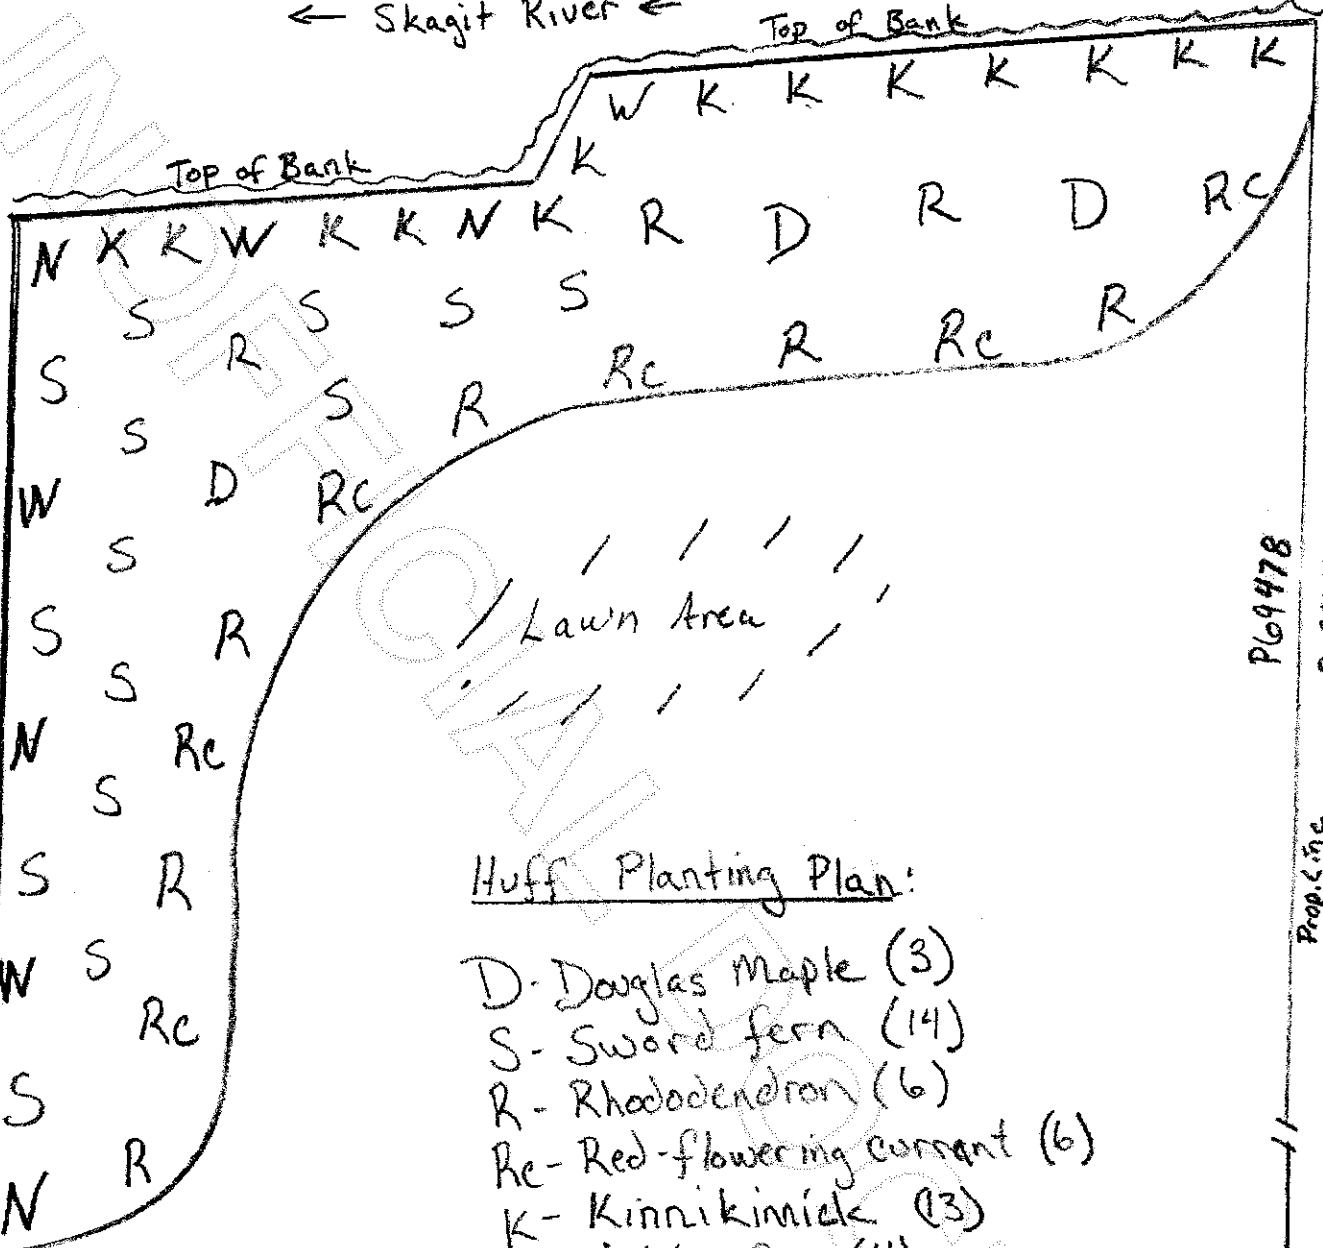 ← Skagit River ←
Top of Bank
W K K K K K K K
K
Top of Bank
N K K W K K N K R D R D Rc
S S S S
S R Rc R Rc R
S S R
W D Rc
S
S R
S
N Rc
S
S R
W S
Rc
S
N R
Lawn Area
P69478
Prop. Line
Huff Planting Plan:
D - Douglas Maple (3)
S - Sword fern (14)
R - Rhododendron (6)
Rc - Red-flowering currant (6)
K - Kinnikinnick (13)
UNOFFICIAL DOC